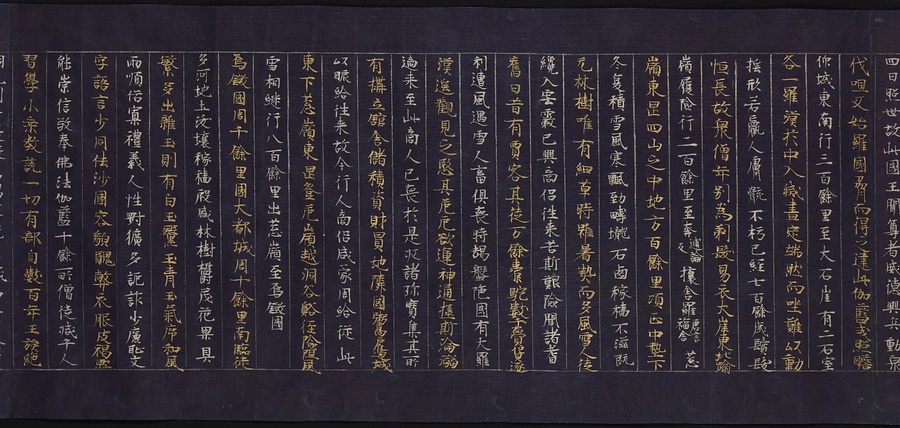 四日照世故此國王聞尊者威德興兵動眾
伐呾叉始羅國脅而得之建此伽藍式昭瞻
仰城東南行三百餘里至大石崖有二石室
各一羅漢於中入滅盡定端然而坐難以動
搖形若羸人膚骸不朽已經七百餘歲鬚髮
恒長故眾僧年別為剃髮易衣大崖東北踰
嶺履險行二百餘里至奔逋論反攘舍羅唐言福舍葱
嶺東崑四山之中地方百餘里頃正中墊下
冬夏積雪風寒飄勁疇壠石鹵稼穡不滋既
无林樹唯有細草時雖暑熱而多風雪人徒
纔入雲霧已興商侶往來苦斯艱險聞諸耆
舊曰昔有賈客其徒万餘橐駝數千齎貨逐
利遭風遇雪人畜俱喪時朅盤陁國有大羅
漢遙觀見之愍其危厄欲運神通拯斯淪溺
適來至此商人已喪於是收諸珍寶集其所
有構立館舍儲積資財買地隣國鬻戶邊城
以賑給往來故今行人商侶咸蒙周給從此
東下葱嶺東崑登危嶺越洞谷谿徑險阻風
雪相繼行八百餘里出葱嶺至烏鎩國
烏鎩國周千餘里國大都城周十餘里南臨徙
多河地土沃壤稼穡殷盛林樹鬱茂花果具
繁多出雜玉則有白玉黳玉青玉氣序和風
雨順俗寡禮義人性剛獷多詭詐少廉恥文
字語言少同佉沙國容貌醜弊衣服皮褐然
能崇信敬奉佛法伽藍十餘所僧徒減千人
習學小乘教說一切有部自數百年王族絕